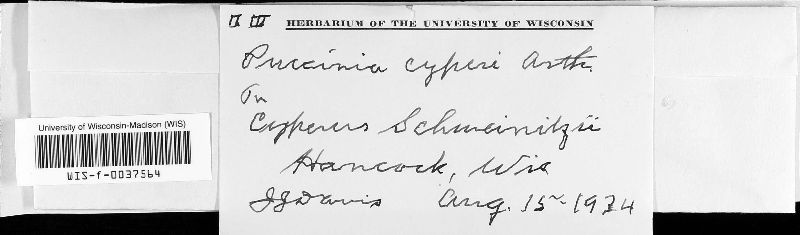 II III HERBARIUM OF THE UNIVERSITY OF WISCONSIN
Puccinia cyperi Arth.
On
Cyperus Schweinitzii
Hancock, Wis
JJDavis Aug. 15- 1934
University of Wisconsin-Madison (WIS)
WIS-f-0037564